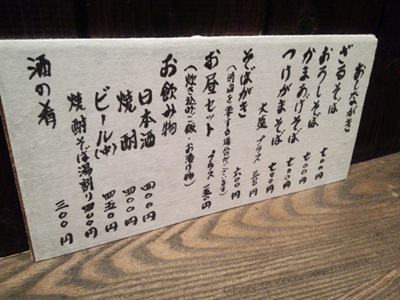 おしながき
ざるそば 七〇〇円
おろしそば 七〇〇円
かまあげそば 七〇〇円
つけがまそば 七〇〇円
大盛 プラス 三〇〇円
そばがき 六〇〇円
お昼セット プラス 二五〇円
(炊き込みご飯・お漬け物)
お飲み物
日本酒 四〇〇円
焼酎 四〇〇円
ビール(中) 四五〇円
焼酎そば湯割り 四〇〇円
酒の肴 三〇〇円